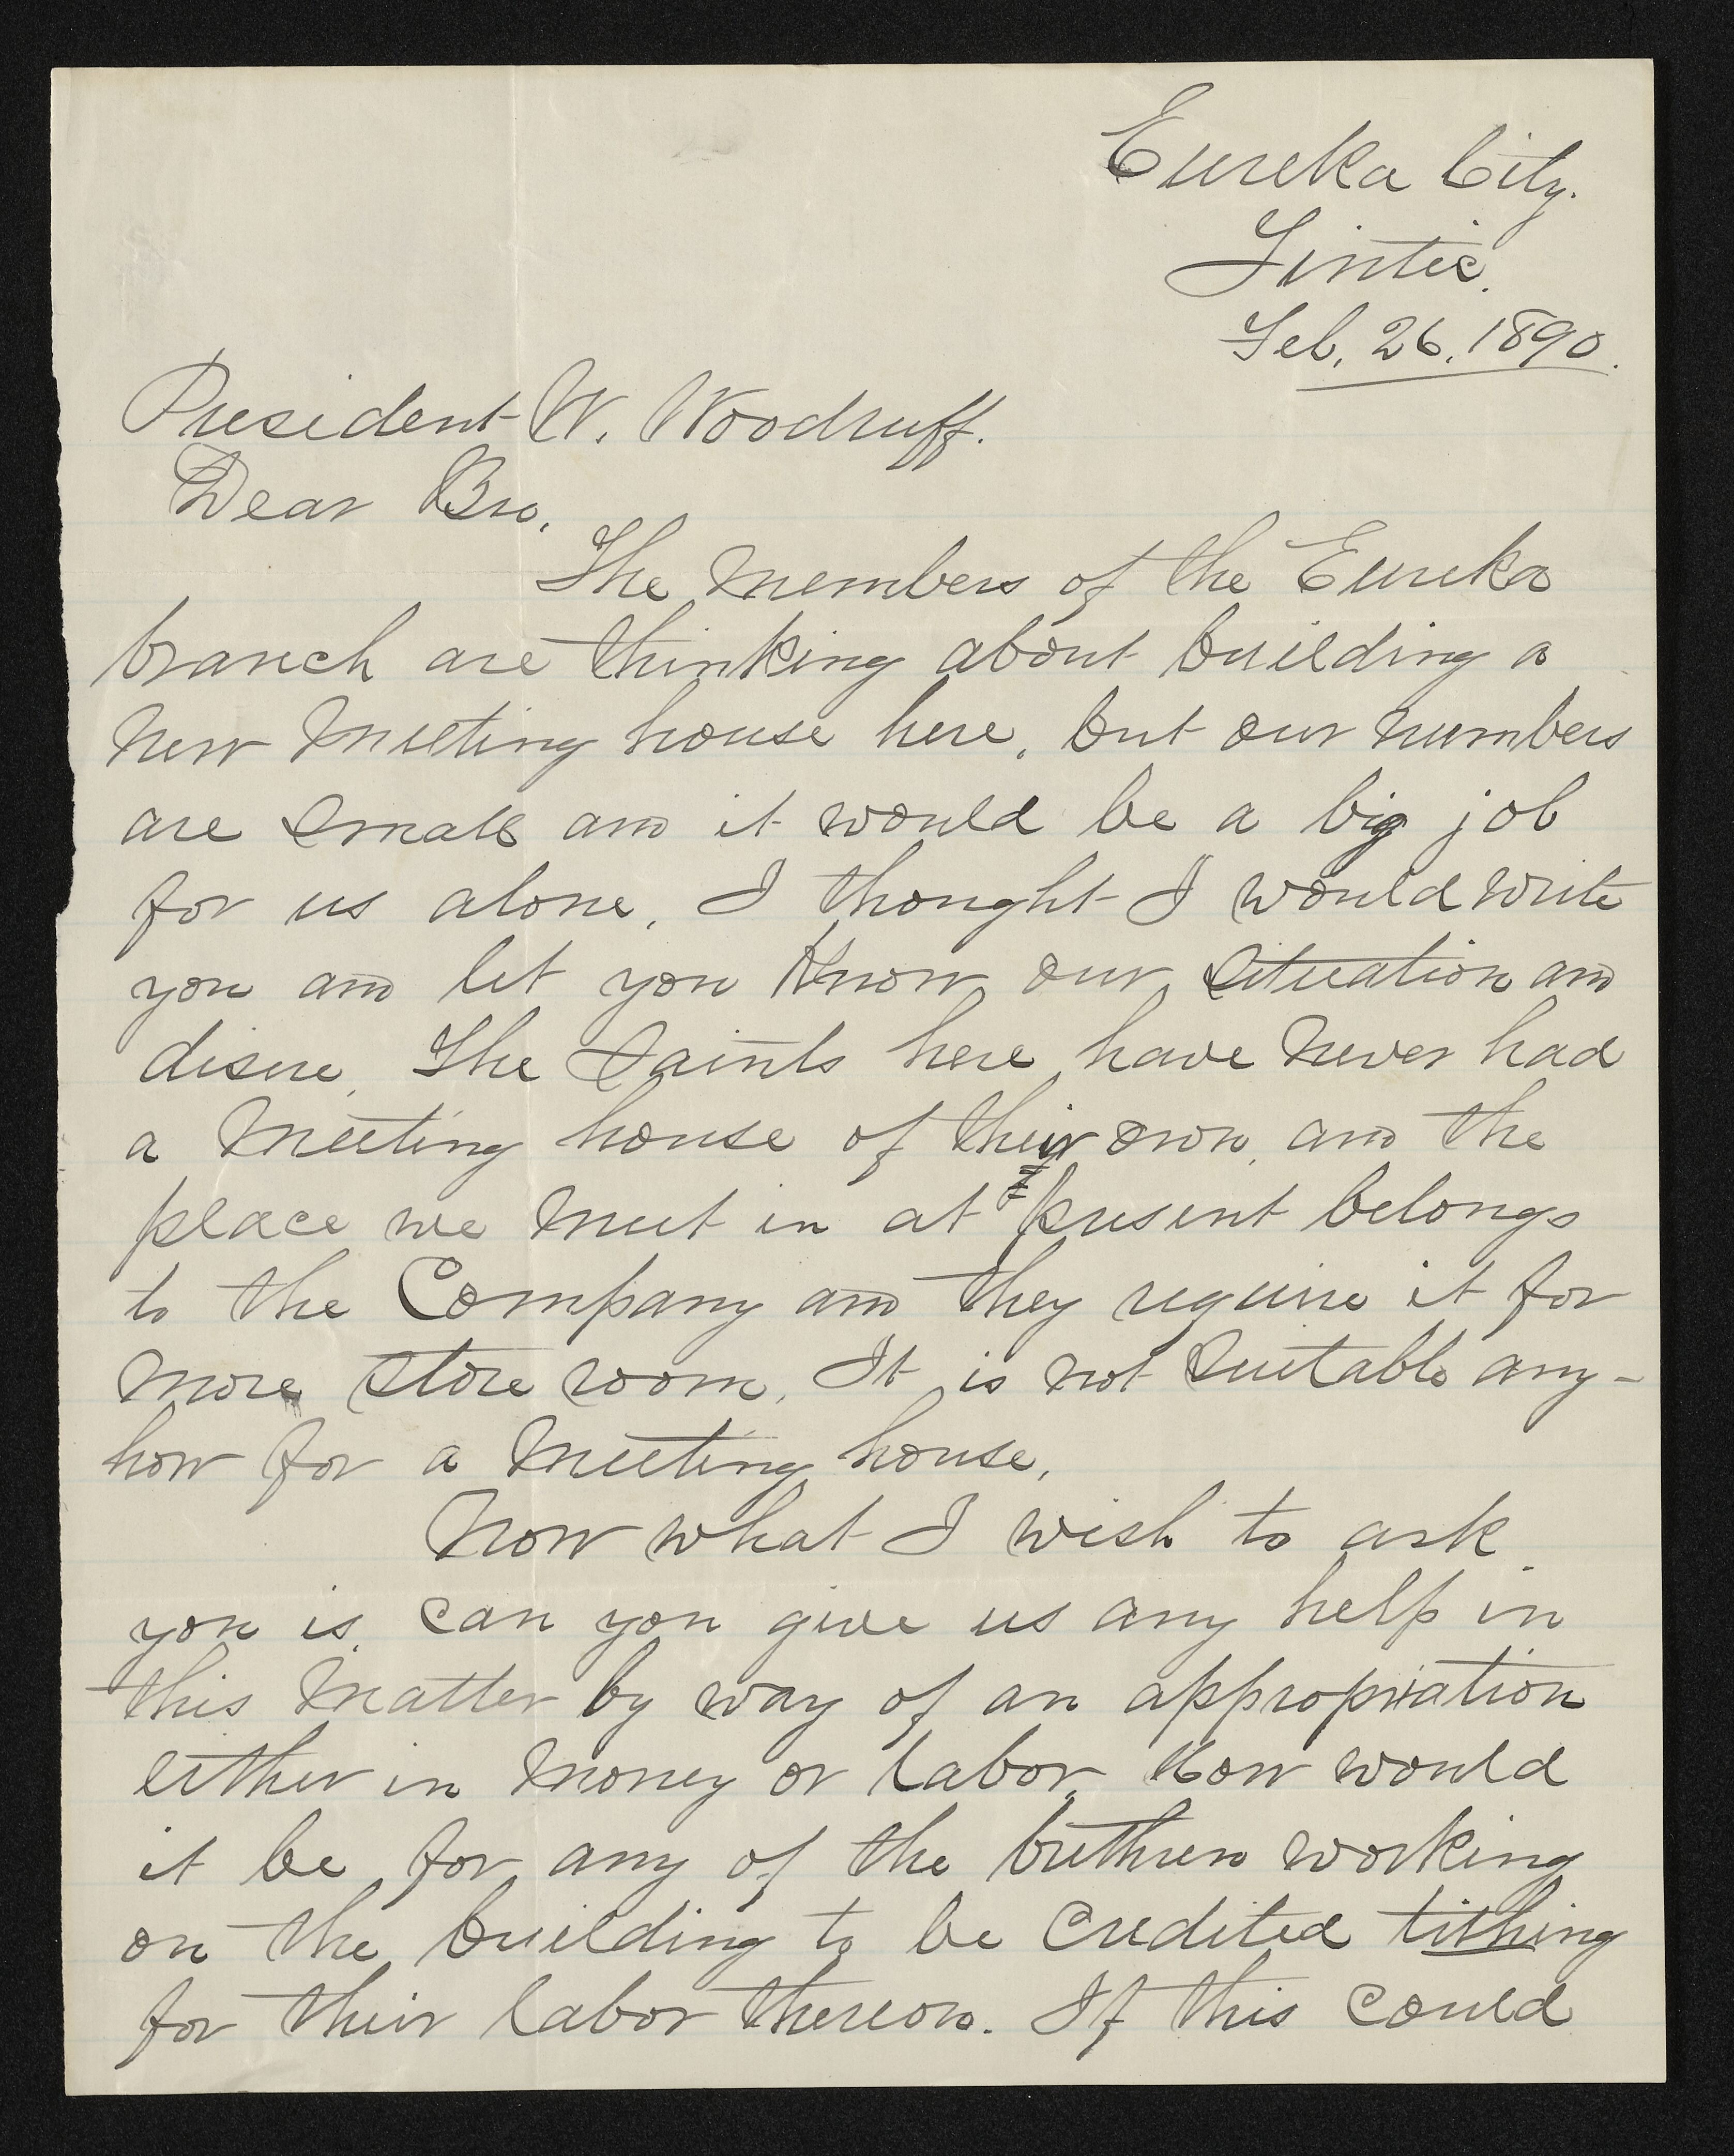 Eureka City.
Tintic.
Feb. 26. 1890.
President W. Woodruff.
Dear Bro.
The members of the Eureka
branch are thinking about building a
new meeting house here, but our numbers
are small and it would be a big job
for us alone. I thought I would write
you and let you know our situation and
disire. The Saints here have never had
a meeting house of their own, and the
place we meet in at present belongs
to the Company and they require it for
more store room. It is not suitable any-
how for a meeting house.
Now what I wish to ask
you is, can you give us any help in
this matter by way of an appropriation
either in money or labor. How would
it be for any of the brethren working
on the building to be credited tithing
for their labor thereon. If this could